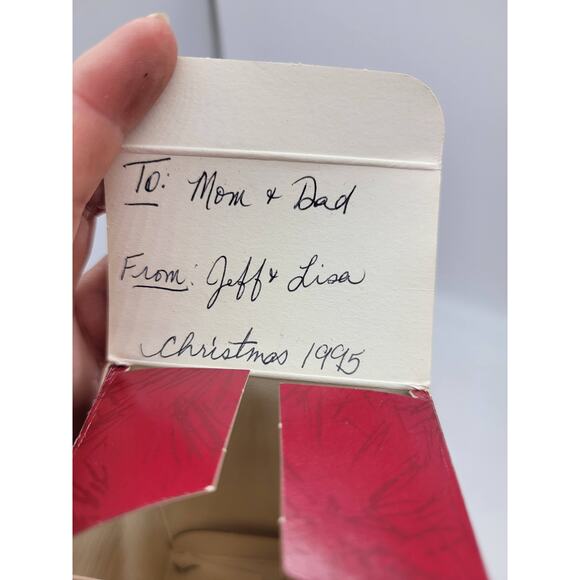 To: Mom & Dad
From: Jeff & Lisa
Christmas 1995